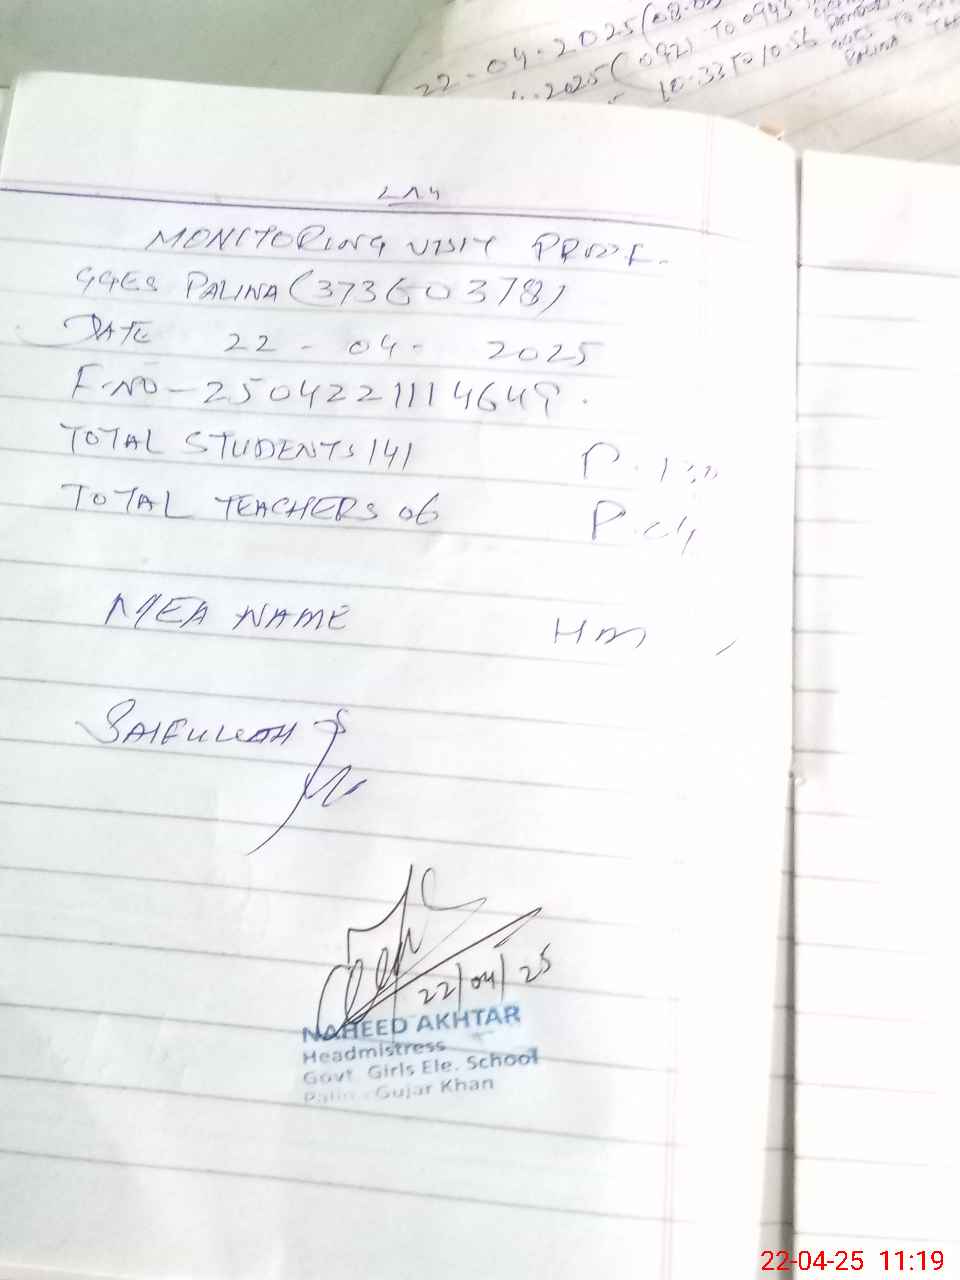 22-04-2025(
2025(0921 TO 0943
10:33 TO 10:56
PALINA
MONITORING VISIT PROOF.
GGES PALINA (37360378)
DATE 22-04-2025
F.NO-2504221114649.
TOTAL STUDENTS 141 P.
TOTAL TEACHERS 06 P.04
MEA NAME HM
SAIFULLAH
22/04/25
NAHEED AKHTAR
Headmistress
Govt. Girls Ele. School
Palina Gujar Khan
22-04-25 11:19